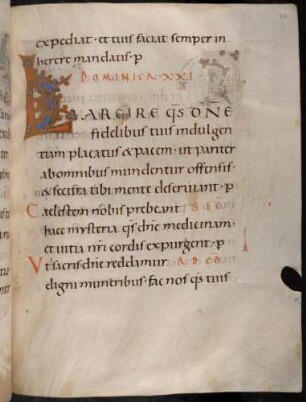 expediat · et tuis faciat semper in
herere mandatis · p
DOMINICA · XXI
LARGIRE qs DNE
fidelibus tuis indulgen
tiam placatus & pacem · ut pariter
ab omnibus mundentur offensis ·
& secura tibi mente deserviant · p
Caelestem nobis prebeant
haec mysteria qs dne medicinam ·
et vitia nri cordis expurgent · p
Ut sacris dne reddamur AD CO
digni muneribus · fac nos qs tuis